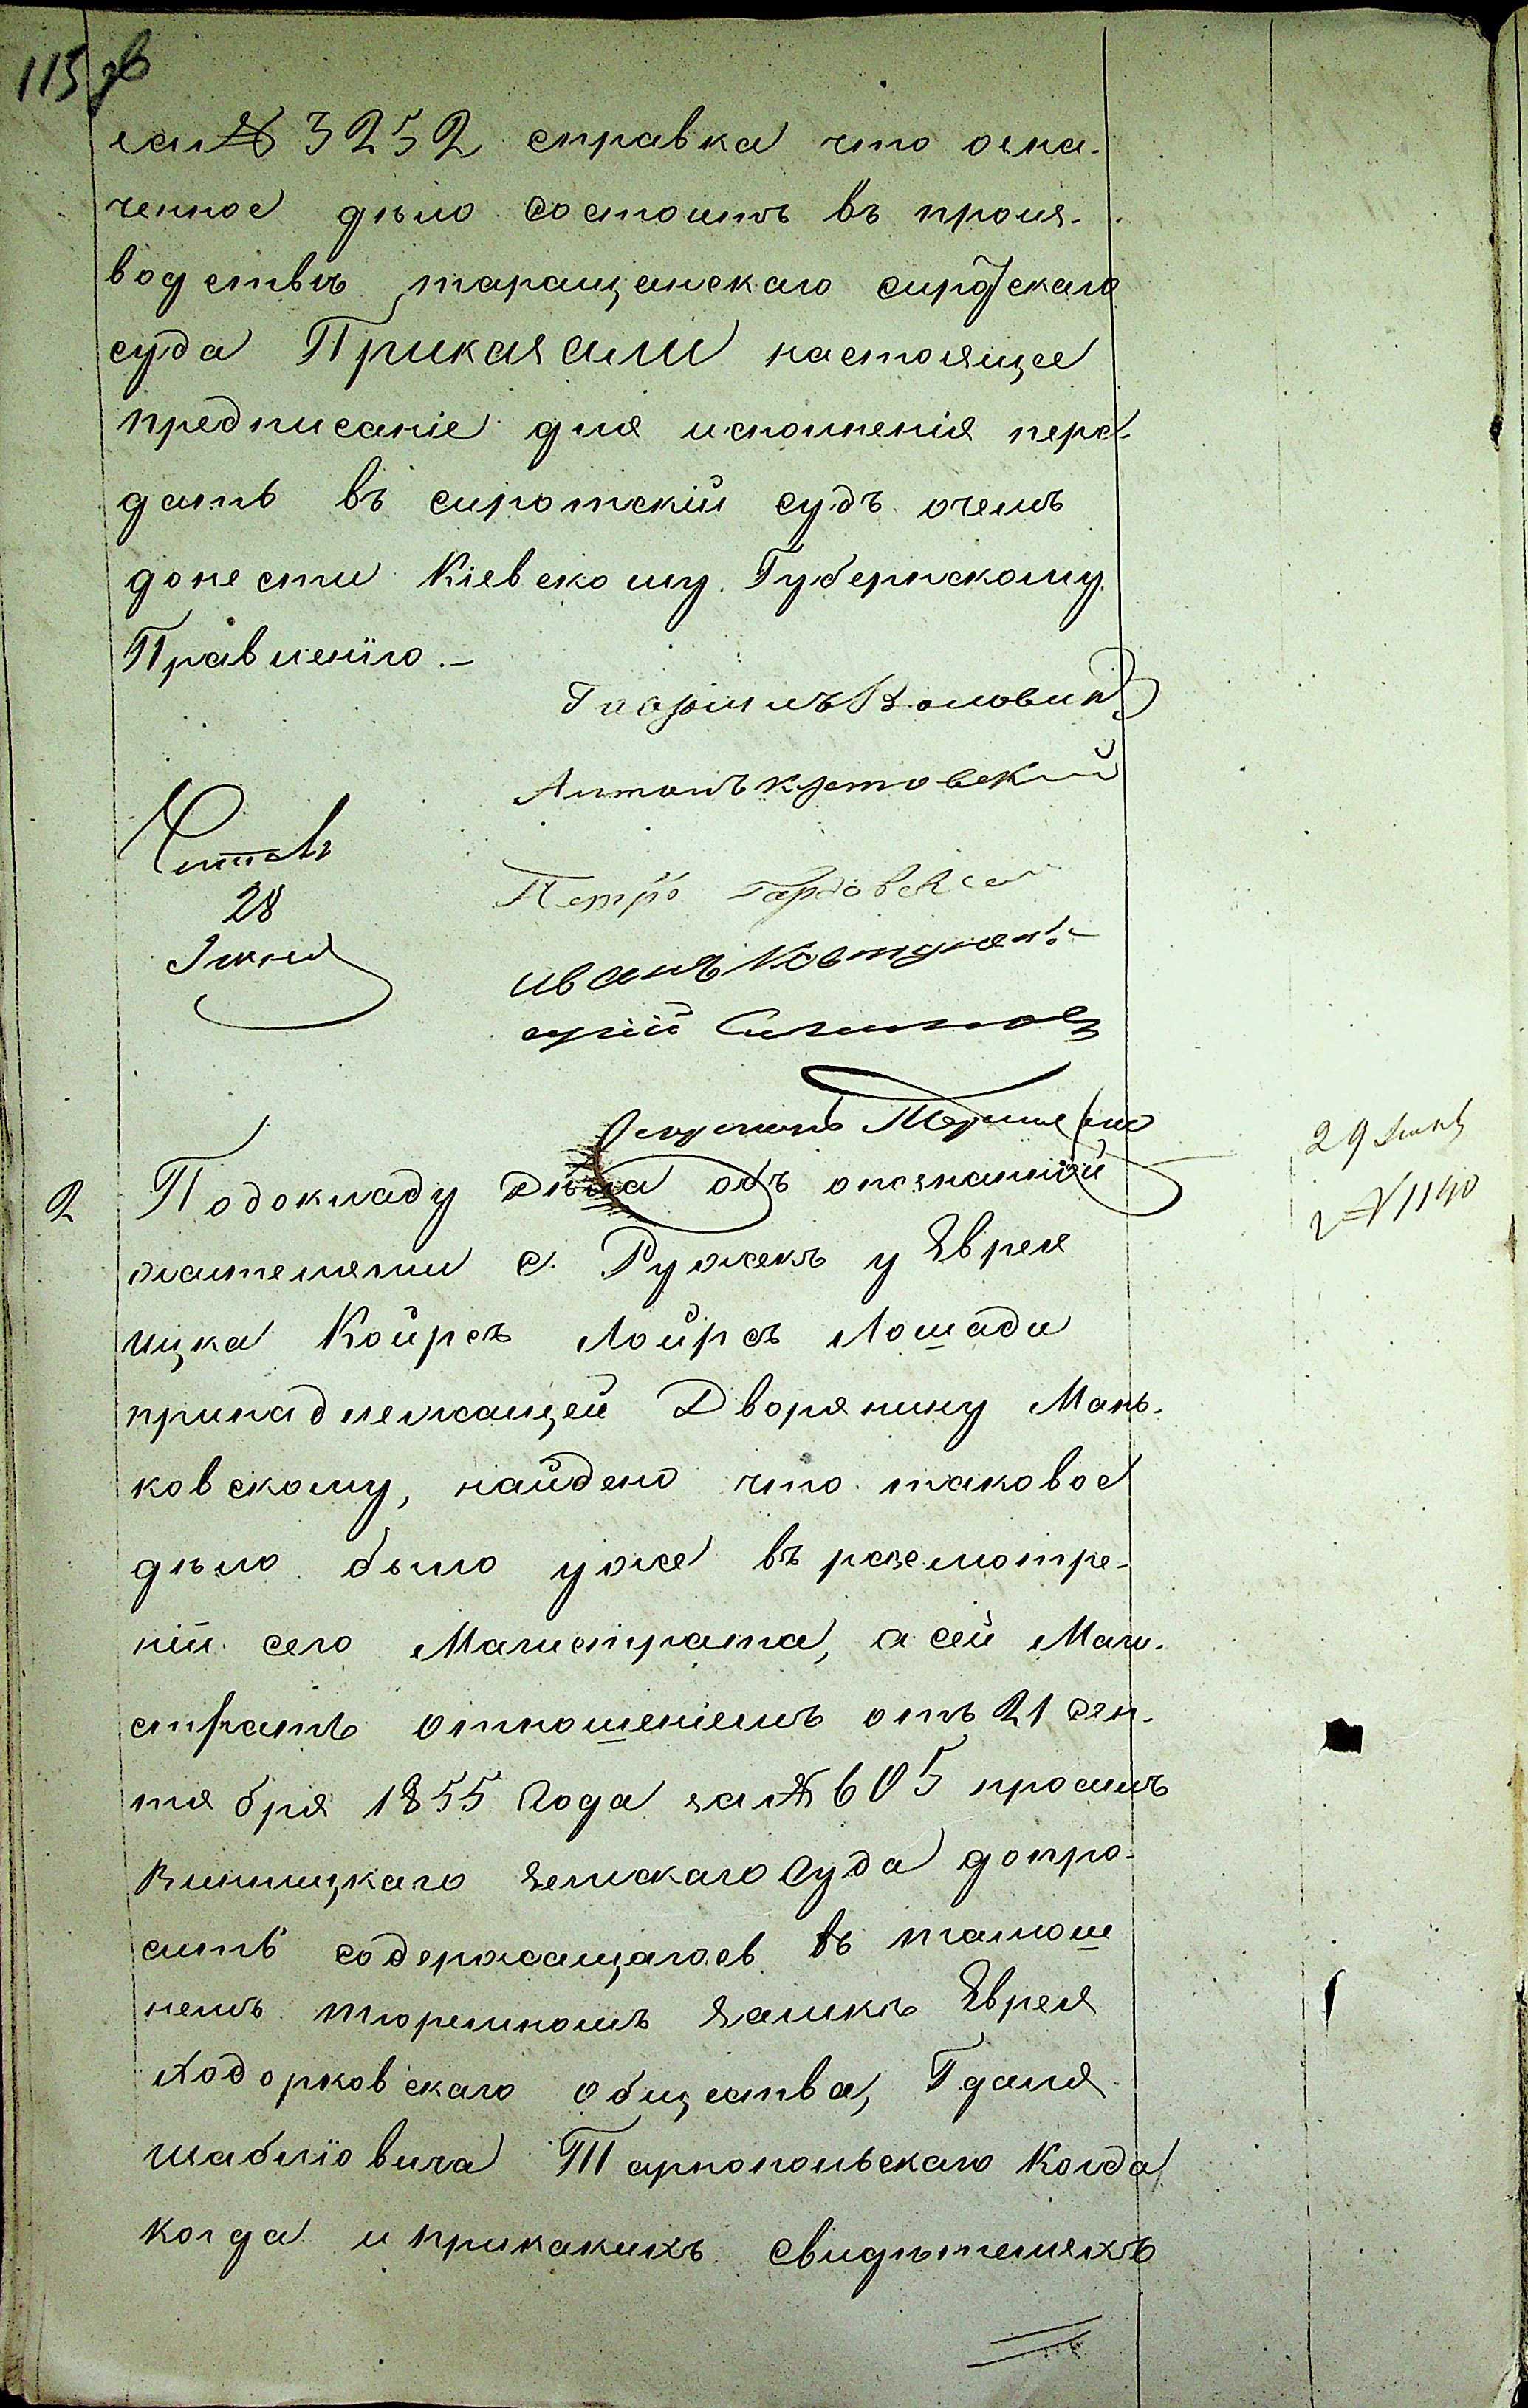 115 об
за № 3252 справка что озна-
ченное дѣло состоитъ въ произ-
водствѣ таращанскаго сиротскаго
суда Приказали настоящее
предписаніе для исполненія пере-
дать въ сиротскій судъ очемъ
донести Кіевскому Губернскому
Правленію.-
Гавріилъ Воловик
Антонъ Кртовский
Читалъ
Петръ
28
Іюня
Иванъ
2 Подокладу Дѣла объ опознанной
29 Іюня
№ 1140
жителями с. Ружекъ у Еврея
Ицка Койрсъ Лойрсъ Лошади
принадлежащей Дворянину Мань-
ковскому, найдено что таковое
дѣло было уже въ разсмотре-
ніи сего Магистрата, а сей Маги-
стратъ отношеніемъ отъ 21 сен-
тября 1855 года за № 605 просилъ
Винницкаго Земскаго Суда допро-
сить содержащагось въ тамош
немъ тюремномъ Замкѣ Еврея
Ходорковскаго общества, Гдаля
Шабліовича Тарнопольскаго Когда,
когда и прикакихъ свидѣтеляхъ